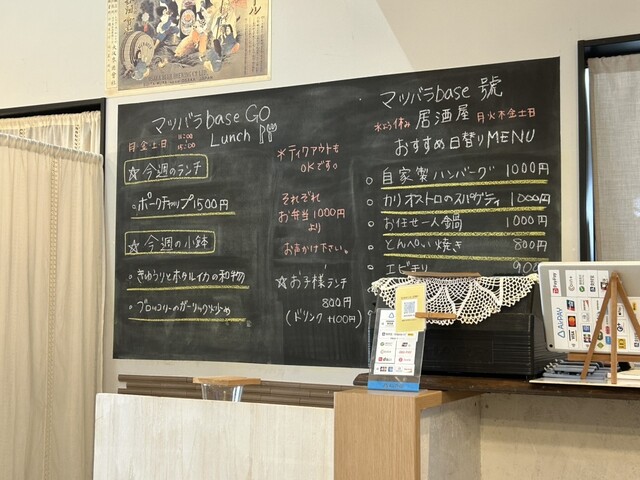 マツバラbase GO
Lunch
月・金土日 11:00
15:00
☆今週のランチ
・ポークチャップ1500円
☆今週の小鉢
・きゅうりとホタルイカの和物
・ブロッコリーのガーリック炒め
※テイクアウトも
OKです。
それぞれ
お弁当1000円
より
お声かけ下さい。
☆お子様ランチ
800円
(ドリンク+100円)
マツバラbase 號
居酒屋 月火木金土日
おすすめ日替りMENU
。自家製ハンバーグ 1000円
。カリオストロのスパゲティ 1000円
。お任せ一人鍋 1000円
。とんぺい焼き 800円
。エビチリ
AirPAY